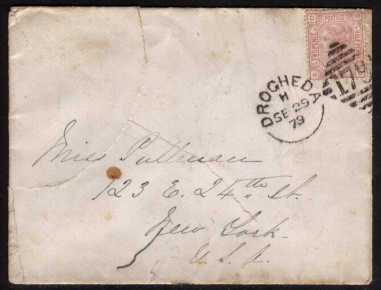 DROGHEDA
H
SE 25
79
179
Miss Pullman
123 E. 24th St.
New York
U.S.A.